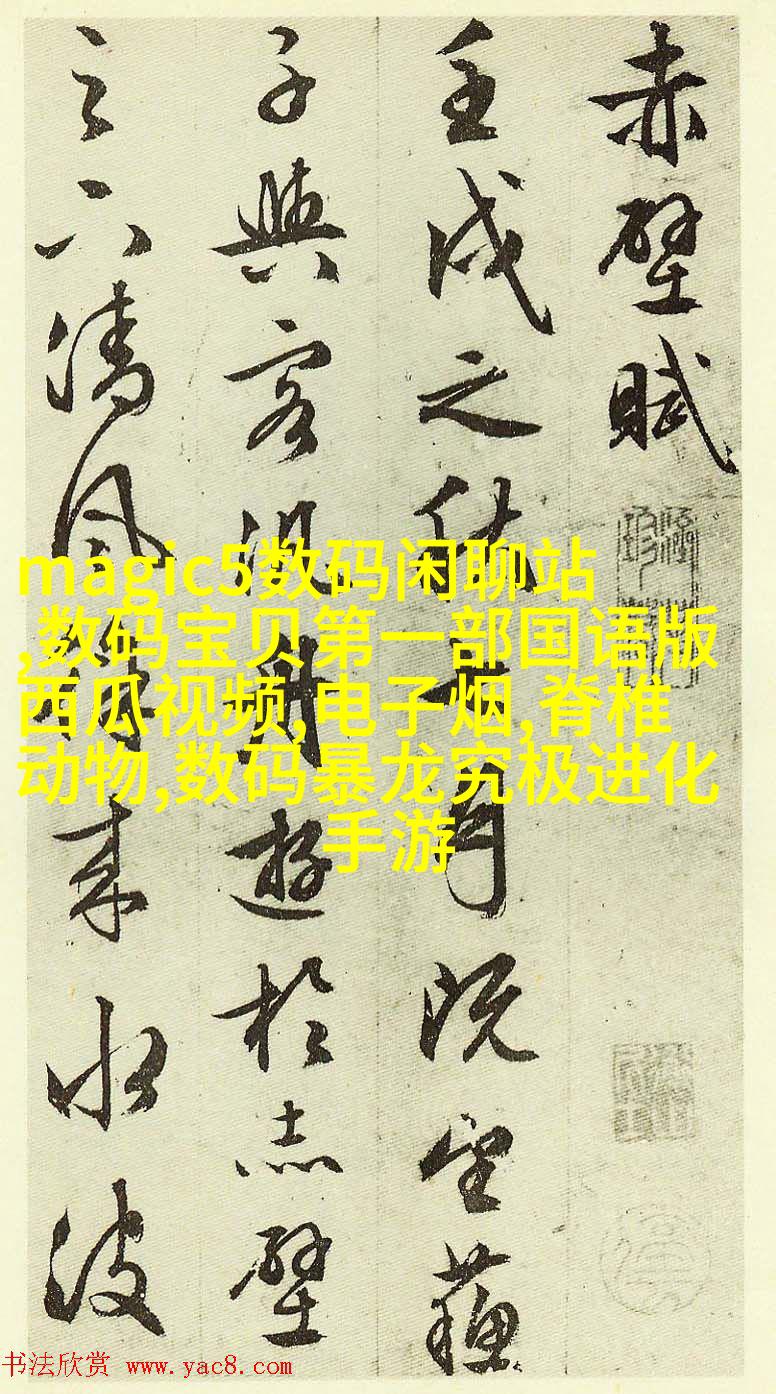 赤壁賦
壬戌之秋七月既望蘇
子與客泛舟遊於赤壁
之下清風徐來水波
magic5数码闲聊站
,数码宝贝第一部国语版
西瓜视频,电子烟,脊椎
动物,数码暴龙究极进化
手游
书法欣赏 www.yac8.com